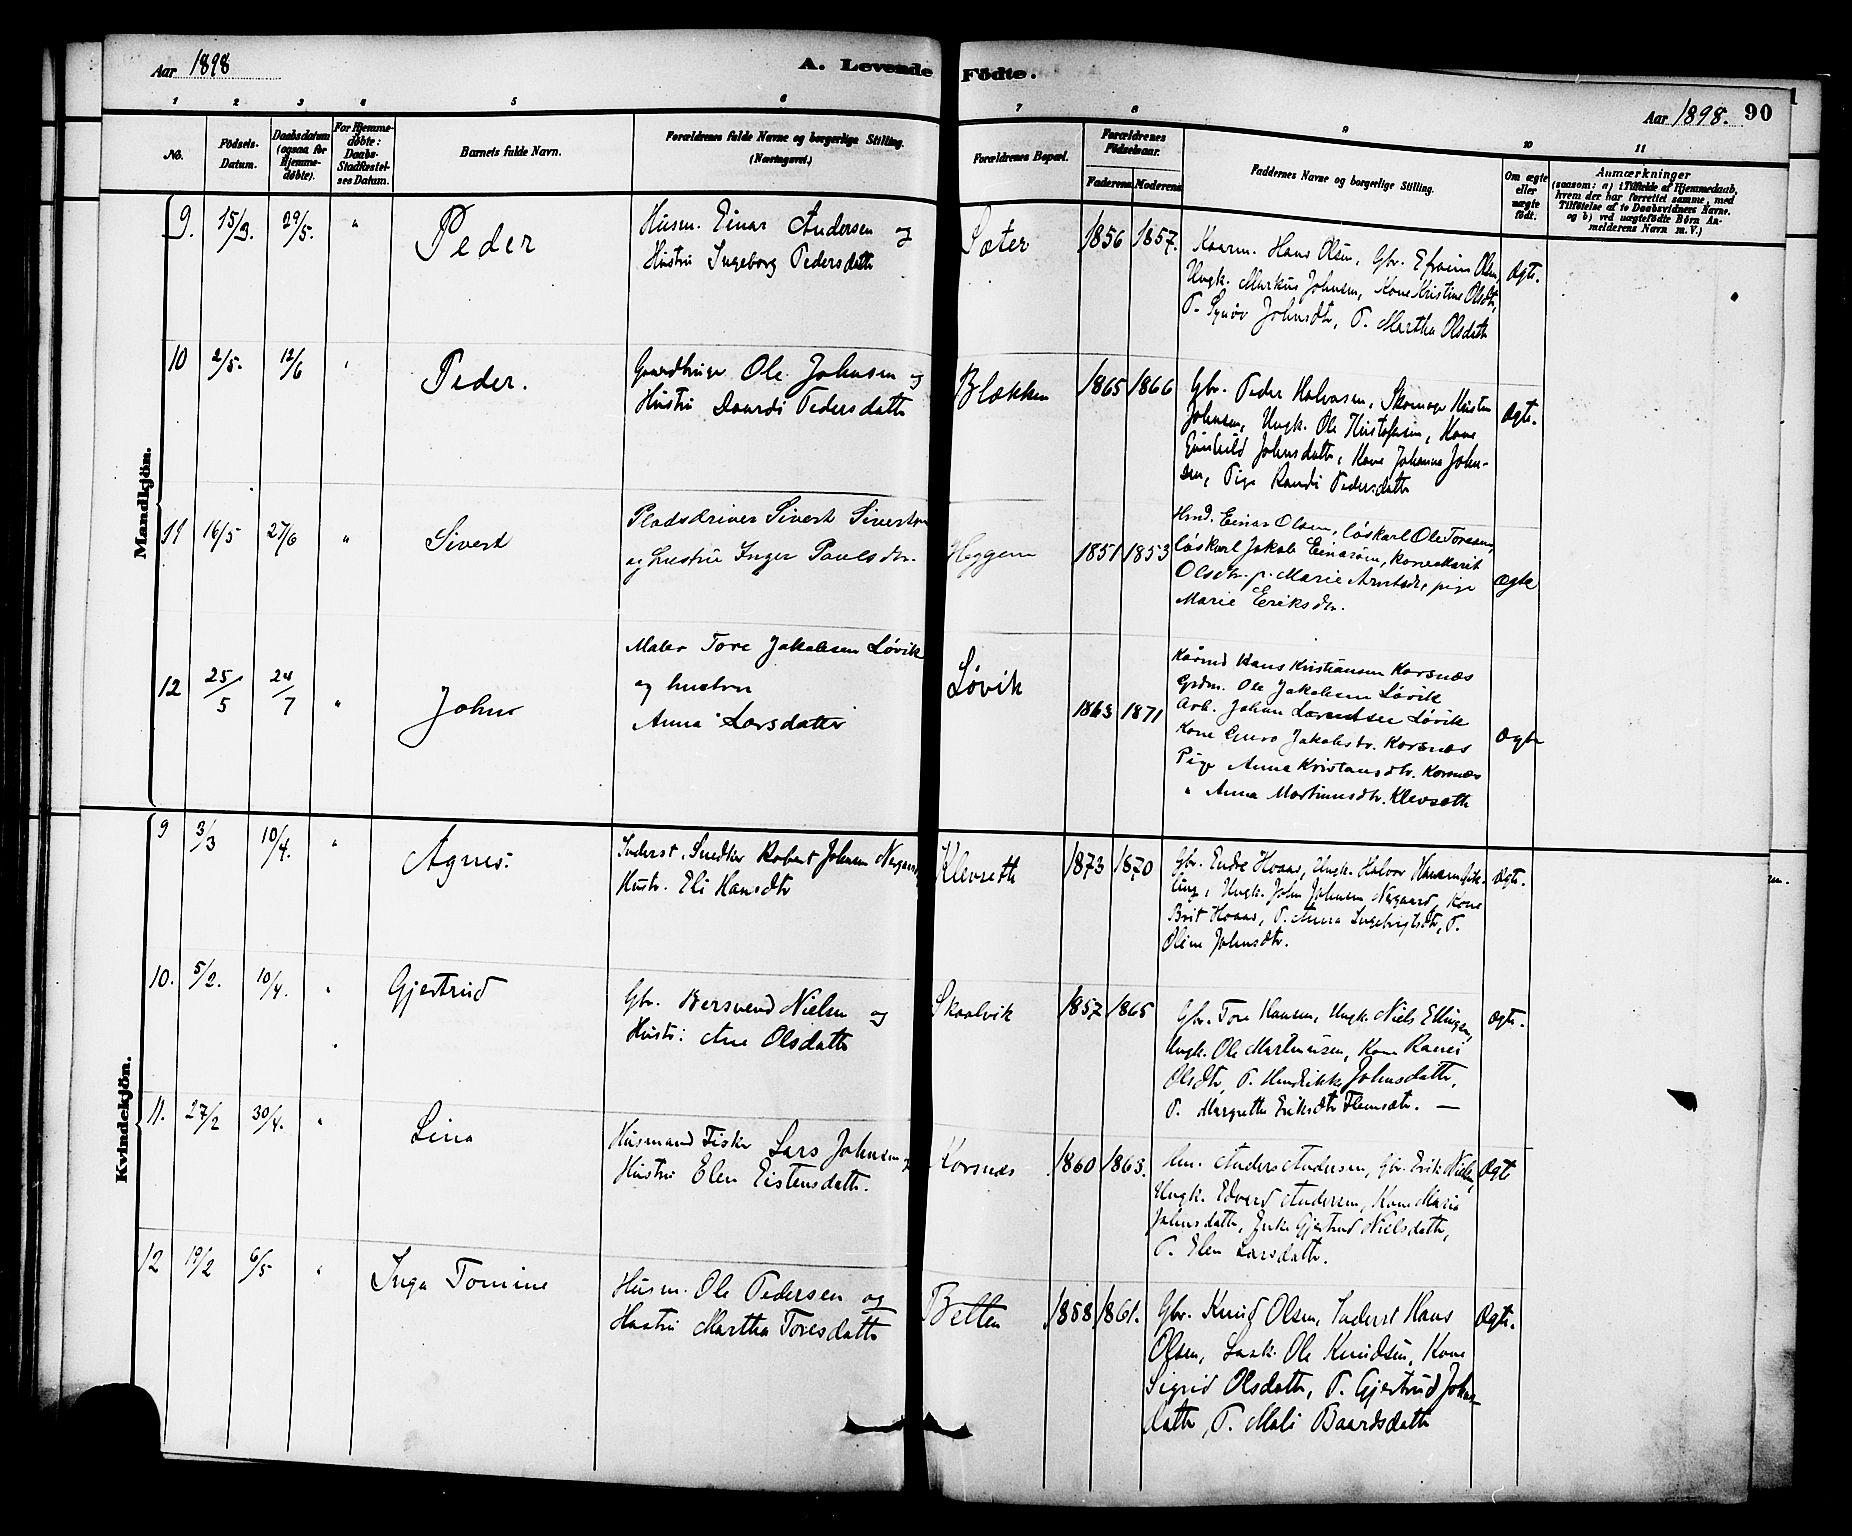 Aar 1898
A. Levende Födte.
Aar 1898. 90
1 2 3 4 5 6 7 8 9 10 11
No.
Födsels-
Datum.
Daabsdatum
(ogsaa for
Hjemme-
døbte).
For Hjemme-
døbte:
Daabs-
Stadfæstel-
ses Datum.
Barnets fulde Navn.
Forældrenes fulde Navne og borgerlige Stilling.
(Næringsvei.)
Forældrenes Bopæl.
Forældrenes
Födselsaar.
Faderens Moderens
Faddernes Navne og borgerlige Stilling.
Om ægte
eller
uægte
födt.
Anmærkninger
(saasom: a) i Tilfælde af Hjemmedaab,
hvem der har forrettet samme, med
Tilföielse af to Daabsvidners Navne.
og b) ved uægtefödte Börn An-
melderens Navn m. V.)
Mandkjön.
9. 15/3. 29/5. " Peder
Husm. Einar Andersen og
Hustru Ingeborg Pedersdatt
Sæter 1856 1857.
Kaarm. Hans Olsen, Gbr. Efraim Olsen,
Ungk. Markus Johnsen, Kone Kristine Olsdtr,
P. Synöv Johnsdtr, P. Martha Olsdatt
Ægte.
10 2/5. 12/6 " Peder.
Gaardbruger Ole Johnsen og
Hustru Baardi Pedersdatt
Blækken 1865 1866
Gbr. Peder Halvorsen, Skomager Kristen
Johnsen, Ungk. Ole Kristofersen, Kone
Gunhild Johnsdatt, Kone Johanna John-
sen, Pige Randi Pedersdatt
Ægte.
11 16/5 27/6 " Sivert
Pladsdriver Sivert Sivertsen
og hustru Inger Paulsdtr.
Heggem 1851 1853
Hmd. Einar Olsen, löskarl Ole Toresen,
löskarl Jakob Einarsen, kone Marit
Olsdtr. p. Marie Arntsdtr, pige
Marie Eriksdtr.
Ægte
12 25/5 24/7 " John
Maler Tore Jakobsen Løvik
og hustru
Anna Larsdatter
Løvik 1863 1871
Kårmd Hans Kristiansen Korsnæs
Grdm. Ole Jakobsen Løvik
Arb. Johan Larentsen Løvik
Kone Guro Jakobsdtr. Korsnæs
Pige Anna Kristiansdtr. Korsnæs
" Anna Martinusdtr. Klevsæth
Ægte
Kvindekjön.
9 3/3 10/4. " Agnes.
Inderst. Snedker Robert Johnsen Nergaard
Hustr. Eli Hansdtr
Klevseth 1873 1870
Gbr. Endre Hoaas, Ungk. Halvor Hansen
Ungk. John Johnsen Nergaard, Kone
Brit Hoaas, P. Anna Ingebrigtsdtr, P.
Oline Johnsdtr.
Ægte.
10. 5/2. 10/4. " Gjertrud
Gbr. Bersvend Nielsen og
Hustr: Ane Olsdatt
Skaalvik 1857 1865
Gbr. Tore Hansen, Ungk. Niels Ellingsen,
Ungk. Ole Martinusen, Kone Ranei
Olsdtr, P. Hendrikke Johnsdatt,
P. Margrethe Eriksdtr Flemsætr. —
Ægte.
11. 27/2 30/4. " Lina
Husmand Fisker Lars Johnsen og
Hustru Elen Eistensdatt.
Korsnæs 1860 1863.
Anders Andersen, Gbr. Erik Nielsen,
Ungk. Edvard Andersen, Kone Maria
Johnsdatt, Enke Gjertrud Nielsdatt,
P. Elen Larsdatt.
Ægte
12 19/2 6/5 " Inga Tomine
Husm. Ole Pedersen og
Hustru Martha Toresdatt
Betten 1858 1861.
Gbr. Knud Olsen, Inderst Hans
Olsen, Ungk. Ole Knudsen, Kone
Sigrid Olsdatt, P. Gjertrud Johns-
datt, P. Mali Baardsdatt
Ægte.